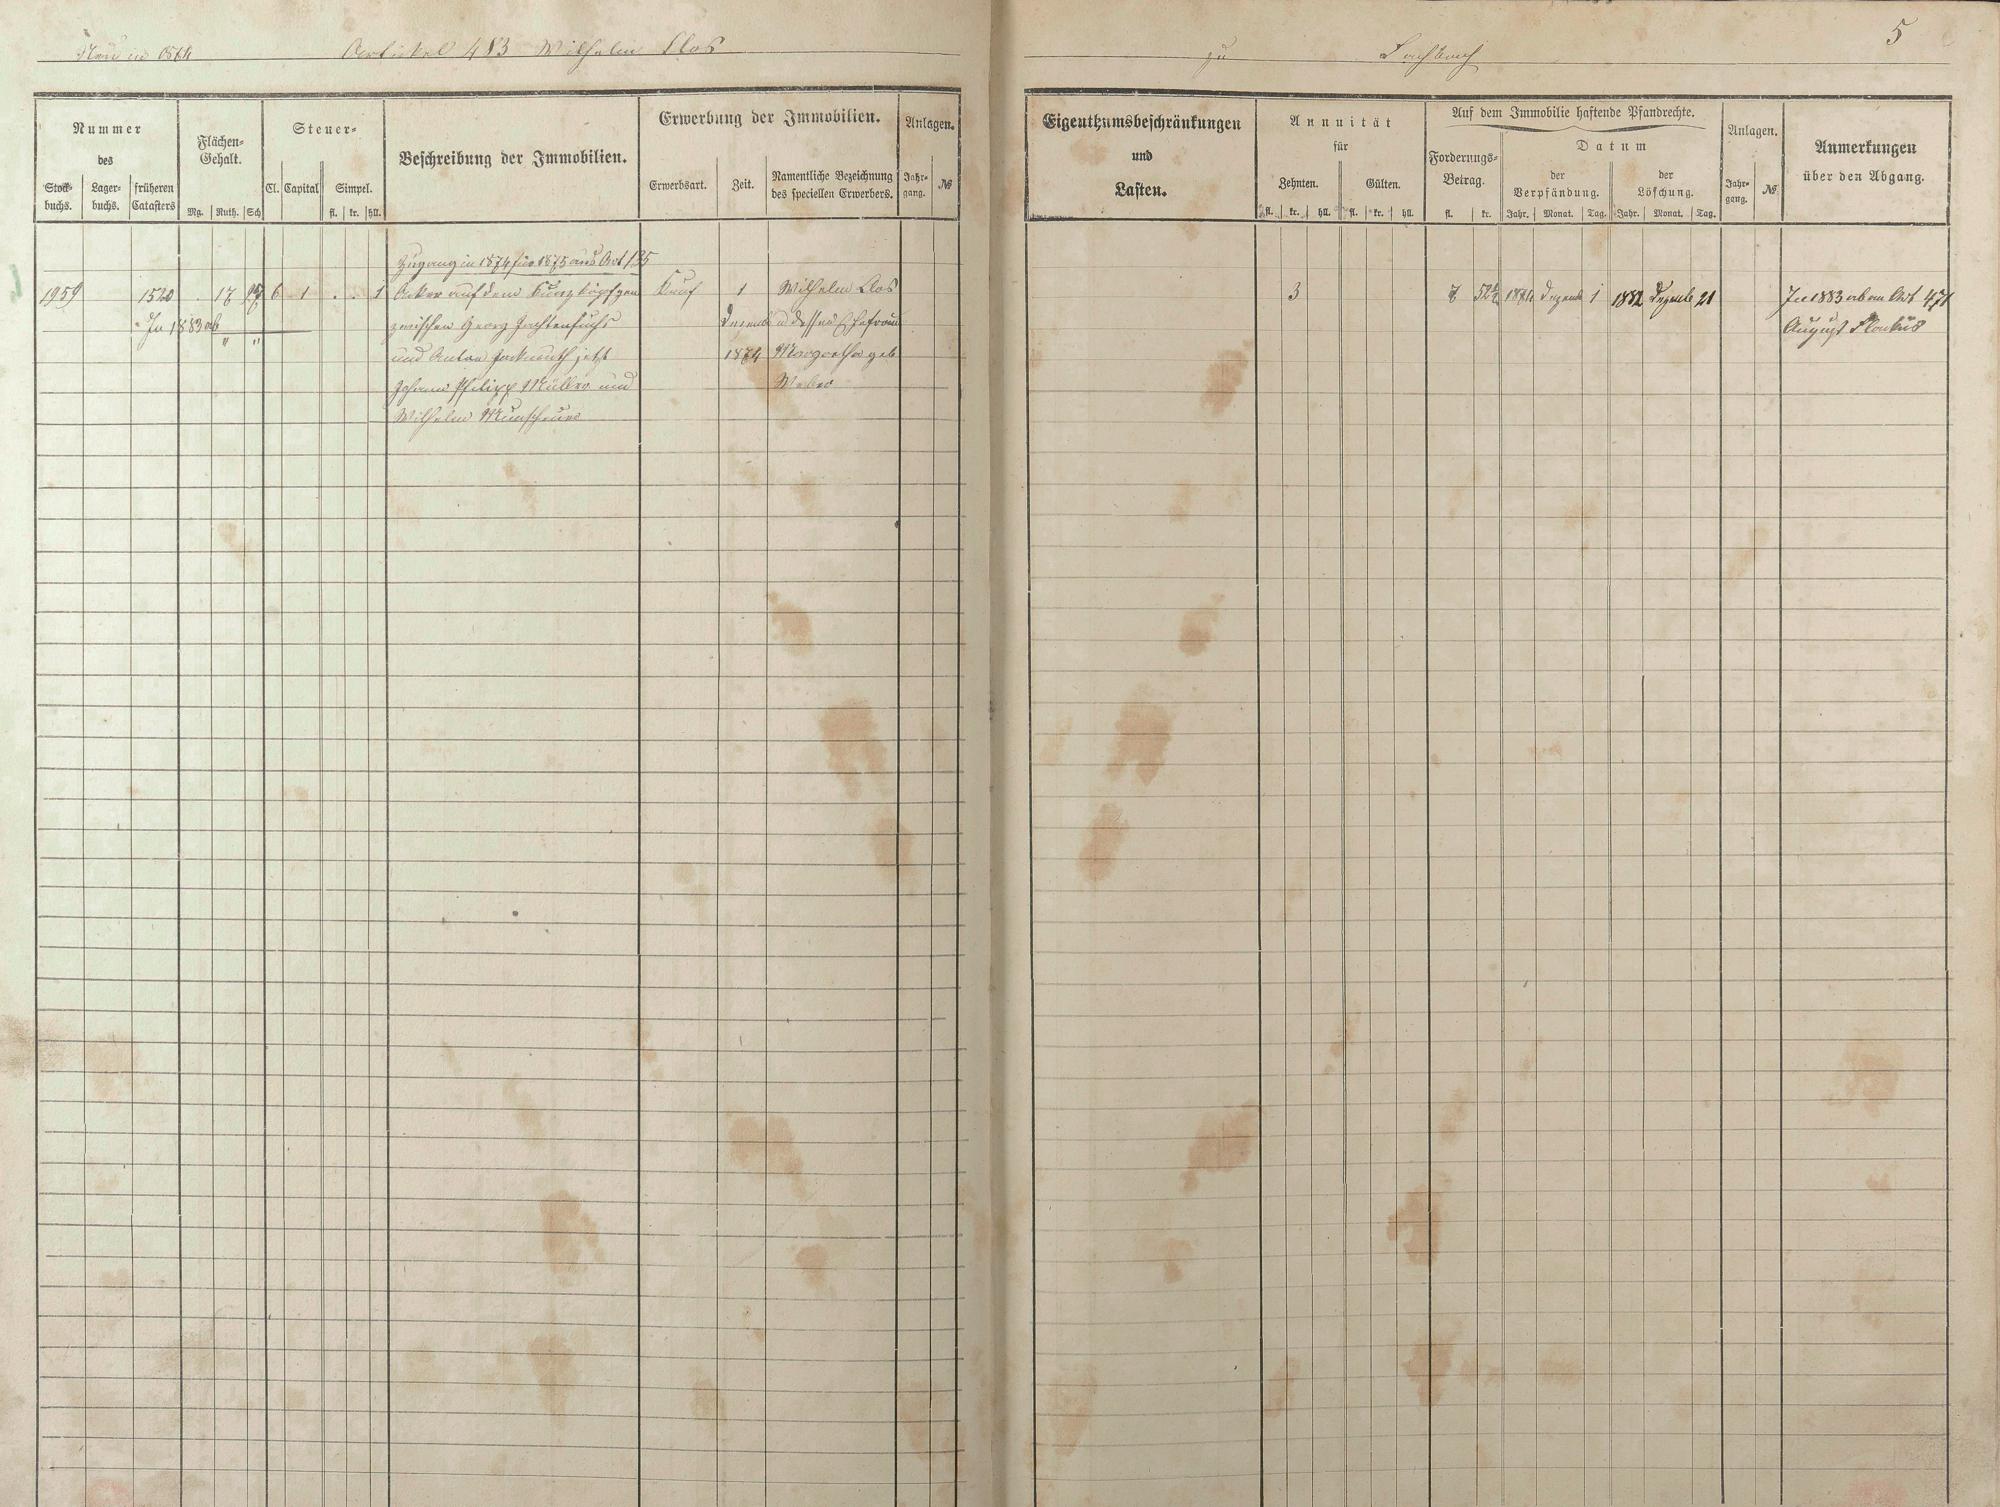 Neu in 1874 Artikel 483 Wilhelm Clos
zu 5
Nummer
des
Stock-buchs. Lager-buchs. früheren Catasters
Flächen-Gehalt.
Mg. Ruth. Sch
Steuer-
Cl. Capital Simpel.
fl. kr. hll.
Beschreibung der Immobilien.
Erwerbung der Immobilien.
Erwerbsart. Zeit. Namentliche Bezeichnung des speciellen Erwerbers.
Anlagen.
Jahr-gang. №
Eigenthumsbeschränkungen
und
Lasten.
Annuität
für
Zehnten. Gülten.
fl. kr. hll. fl. kr. hll.
Auf dem Immobilie haftende Pfandrechte.
Forderungs-Betrag.
fl. kr.
Datum
der Verpfändung. der Löschung.
Jahr. Monat. Tag. Jahr. Monat. Tag.
Anlagen.
Jahr-gang. №
Anmerkungen
über den Abgang.
Zugang in 1874 für 1875 aus Art 135
1959 1520 . 17 6 1 . . 1 Acker auf dem Kauf 1 Wilhelm Clos
3 1874 Dezemb 1 1882 Dezemb 21 In 1883 ab an Art 471
In 1883 ab zwischen Georg Dezemb u dessen Ehefrau
August
" " und Anton jetzt 1874 Margaretha geb
Johann Philipp Müller und Weber
Wilhelm